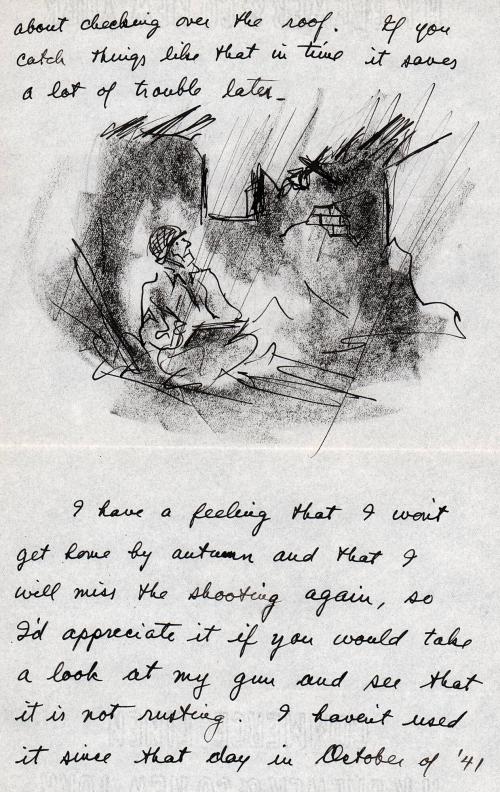 about checking over the roof. If you
catch things like that in time it saves
a lot of trouble later_
I have a feeling that I won't
get home by autumn and that I
will miss the shooting again, so
I'd appreciate it if you would take
a look at my gun and see that
it is not rusting. I haven't used
it since that day in October of '41